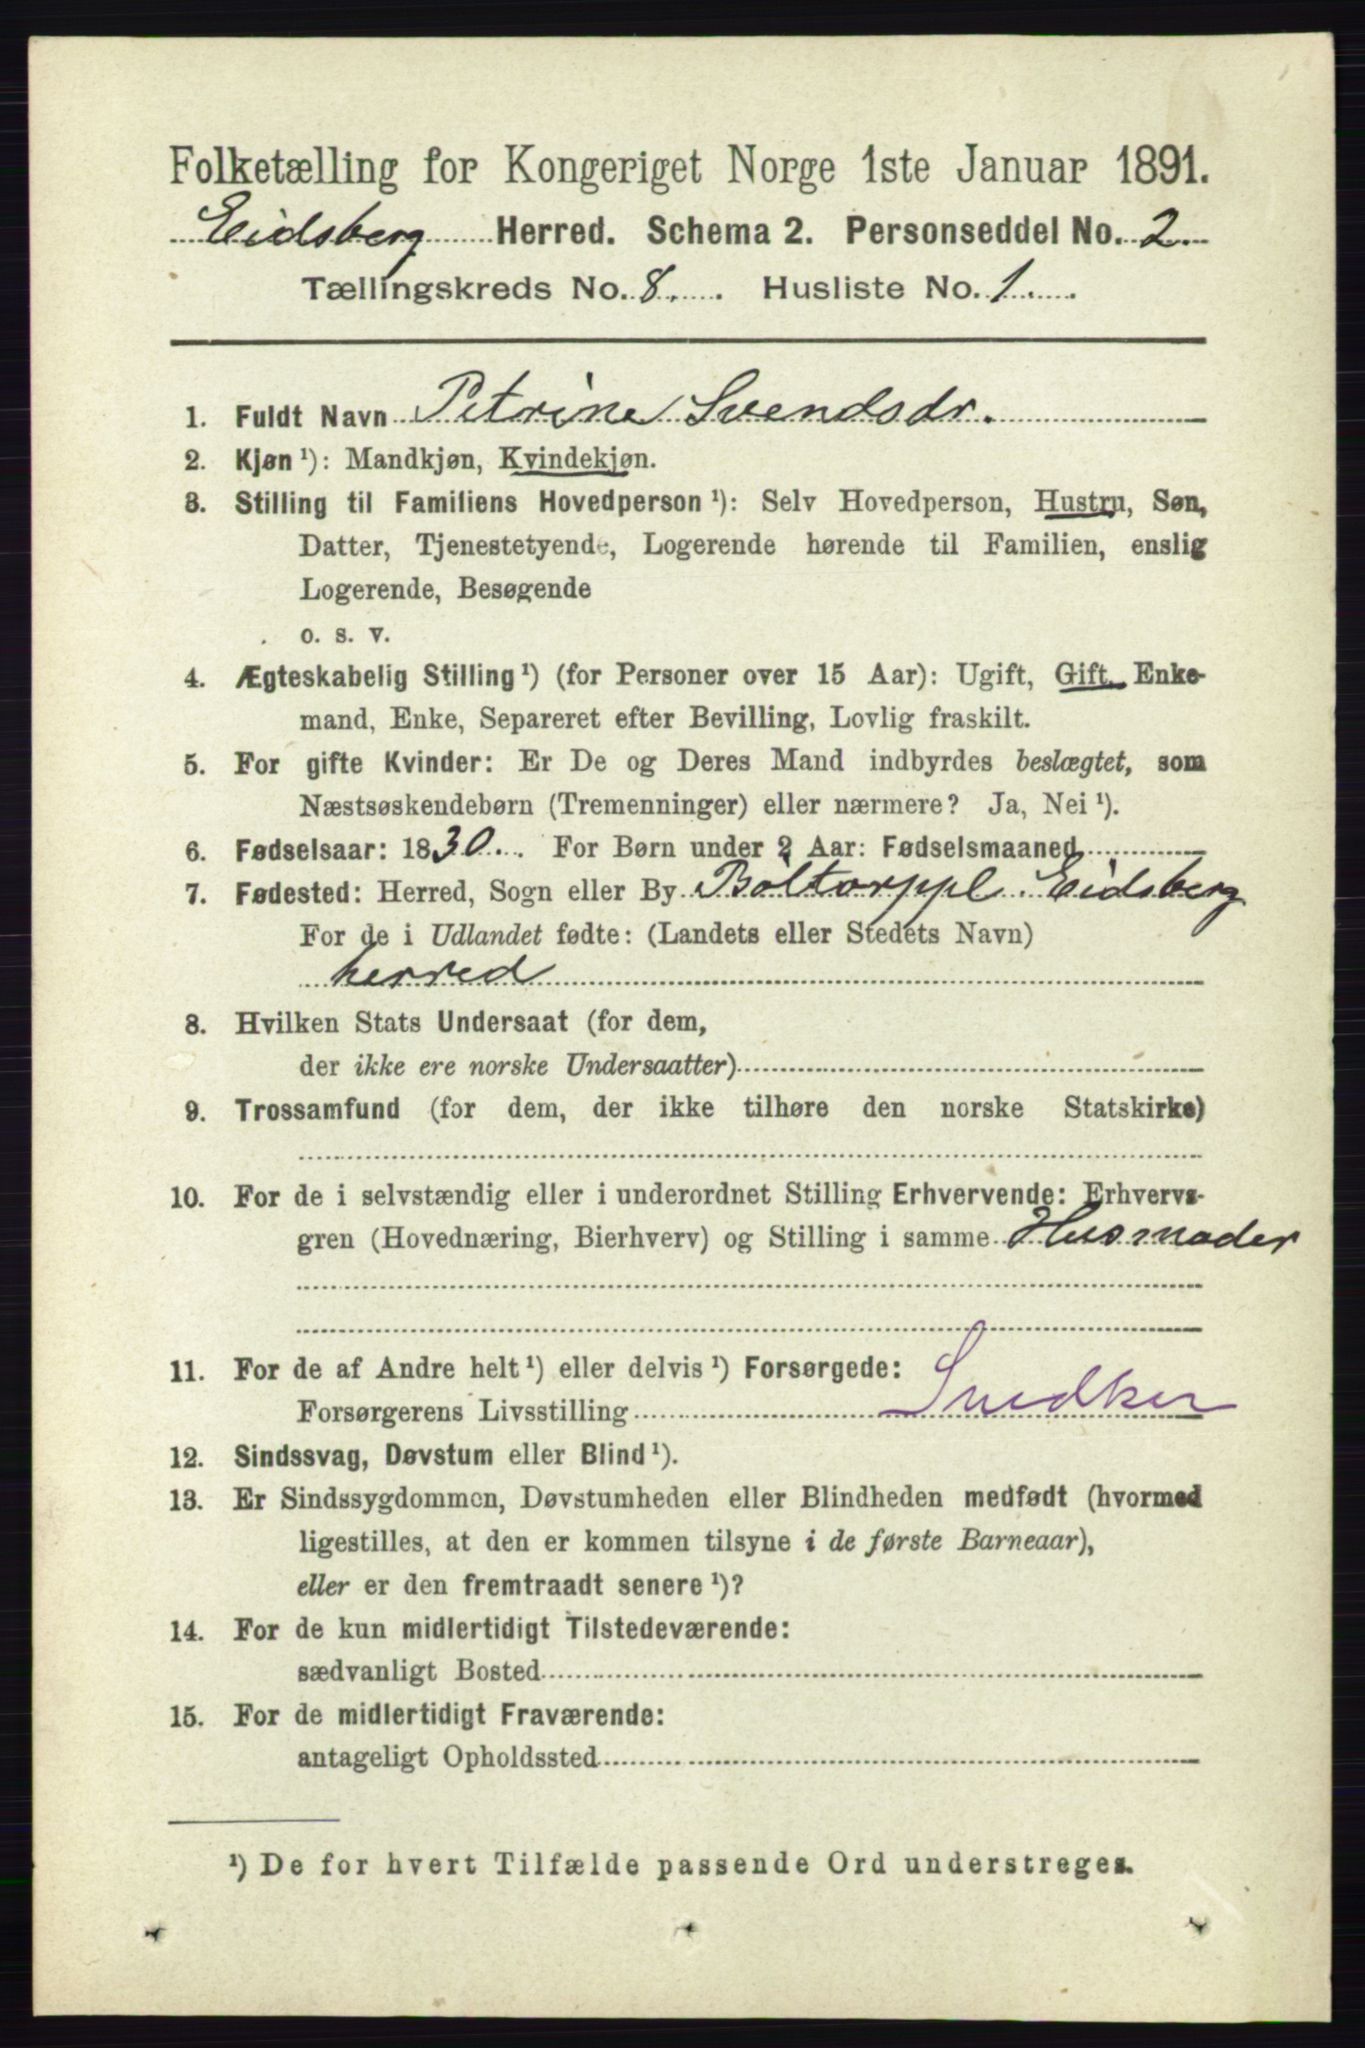 Folketælling for Kongeriget Norge 1ste Januar 1891.
Eidsberg Herred. Schema 2. Personseddel No. 2.
Tællingskreds No. 8. Husliste No. 1.
1. Fuldt Navn Petrine Svendsdr.
2. Kjøn ¹): Mandkjøn, Kvindekjøn.
3. Stilling til Familiens Hovedperson ¹): Selv Hovedperson, Hustru, Søn,
Datter, Tjenestetyende, Logerende hørende til Familien, enslig
Logerende, Besøgende
o. s. v.
4. Ægteskabelig Stilling ¹) (for Personer over 15 Aar): Ugift, Gift, Enke-
mand, Enke, Separeret efter Bevilling, Lovlig fraskilt.
5. For gifte Kvinder: Er De og Deres Mand indbyrdes beslægtet, som
Næstsøskendebørn (Tremenninger) eller nærmere? Ja, Nei ¹).
6. Fødselsaar: 1830. For Børn under 2 Aar: Fødselsmaaned
7. Fødested: Herred, Sogn eller By Boltorppl Eidsberg
For de i Udlandet fødte: (Landets eller Stedets Navn)
herred
8. Hvilken Stats Undersaat (for dem,
der ikke ere norske Undersaatter)
9. Trossamfund (for dem, der ikke tilhøre den norske Statskirke)
10. For de i selvstændig eller i underordnet Stilling Erhvervende: Erhvervs-
gren (Hovednæring, Bierhverv) og Stilling i samme Husmoder
11. For de af Andre helt ¹) eller delvis ¹) Forsørgede:
Forsørgerens Livsstilling Snedker
12. Sindssvag, Døvstum eller Blind ¹).
13. Er Sindssygdommen, Døvstumheden eller Blindheden medfødt (hvormed
ligestilles, at den er kommen tilsyne i de første Barneaar),
eller er den fremtraadt senere ¹)?
14. For de kun midlertidigt Tilstedeværende:
sædvanligt Bosted
15. For de midlertidigt Fraværende:
antageligt Opholdssted
¹) De for hvert Tilfælde passende Ord understreges.